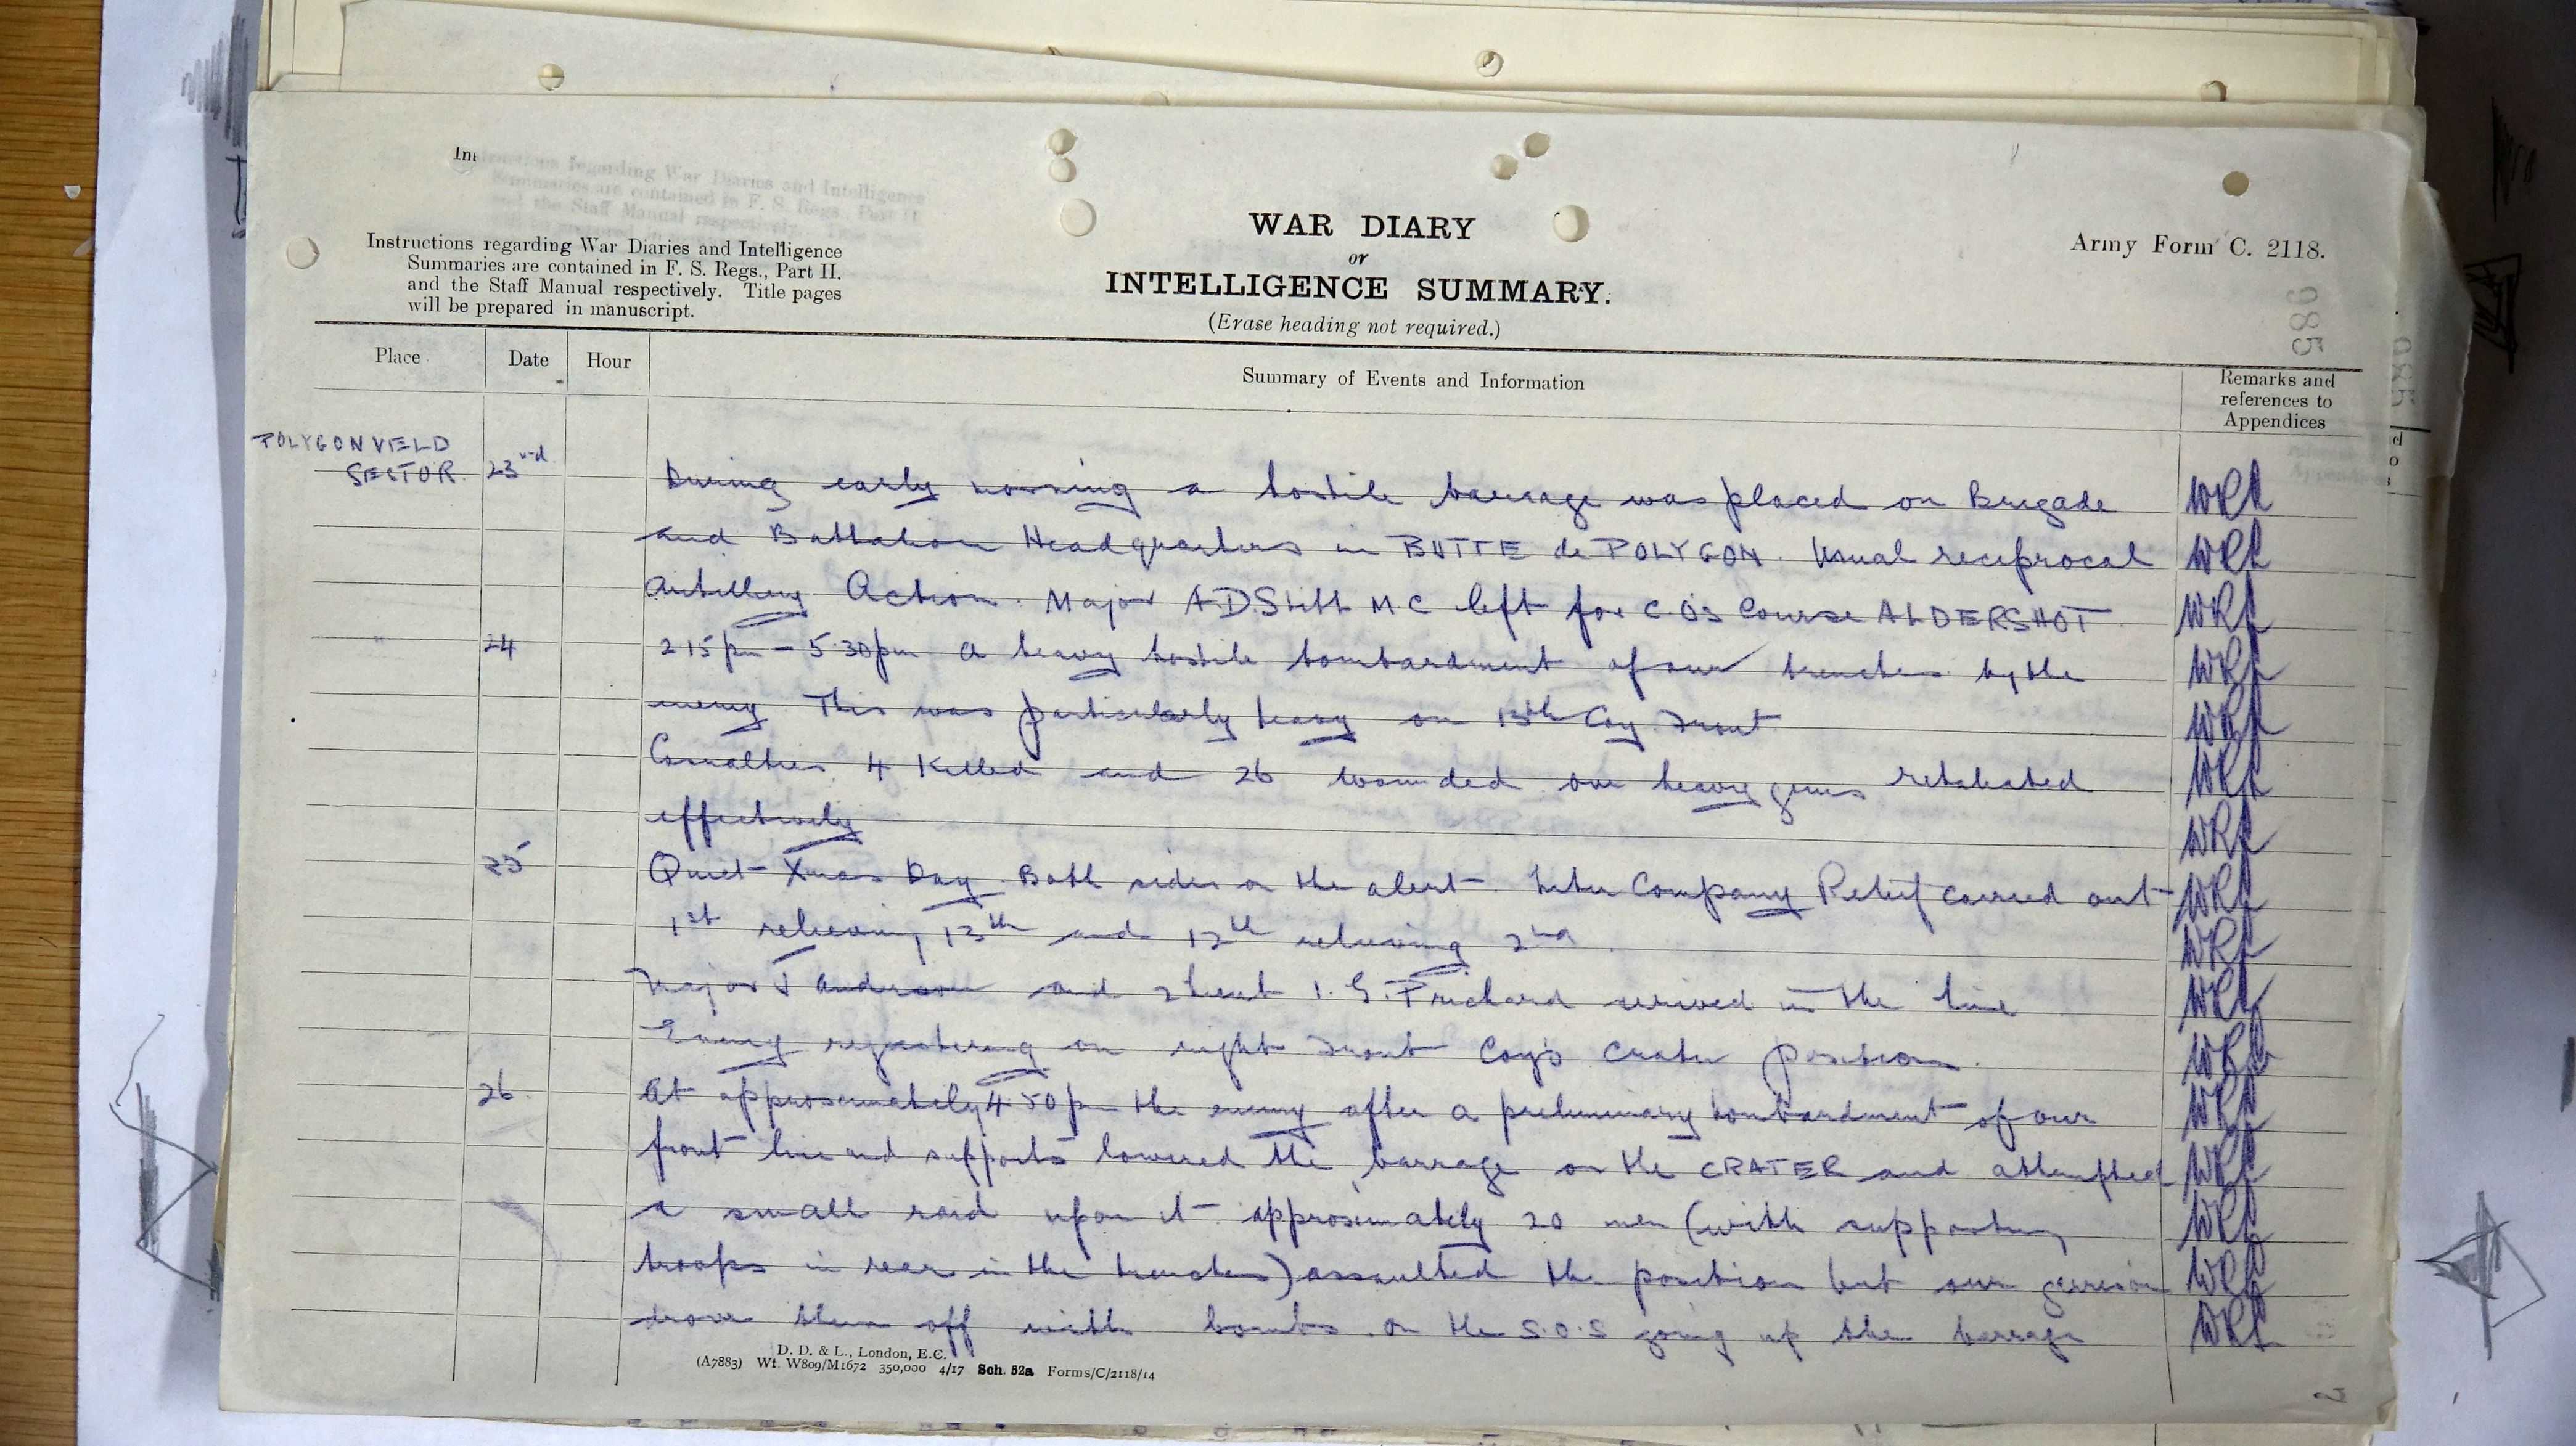 Instructions regarding War Diaries and Intelligence
Summaries are contained in F. S. Regs., Part II.
and the Staff Manual respectively. Title pages
will be prepared in manuscript.
WAR DIARY
or
INTELLIGENCE SUMMARY.
(Erase heading not required.)
Army Form C. 2118.
985
Place Date Hour Summary of Events and Information Remarks and references to Appendices
POLYGONVELD
SECTOR. 23rd During early morning a hostile barrage was placed on Brigade
and Battalion Headquarters in BUTTE de POLYGON. Usual reciprocal
Artillery Action. Major A.D. Stitt M C left for C.O's Course ALDERSHOT.
24 2 15 pm - 5.30 pm a heavy hostile bombardment of our trenches by the
enemy. This was particularly heavy on 13th Coy front
Casualties 4 Killed and 26 wounded our heavy guns retaliated
effectively
25 Quiet Xmas Day. Both sides on the alert. Inter Company Relief carried out
1st relieving 13th and 12th relieving 2nd.
Major J Anderson and 2 Lieut I. G. Prichard arrived in the line
Enemy registering on right front Coy's Crater position.
26. At approximately 4.50 pm the enemy after a preliminary bombardment of our
front line and supports lowered the barrage on the CRATER and attempted
a small raid upon it approximately 20 men (with supporting
troops in rear in the trenches) assaulted the position but our garrison
drove them off with bombs. On the S.O.S going up the barrage
D. D. & L., London, E.C.
(A7883) Wt. W809/M1672 350,000 4/17 Sch. 52a Forms/C/2118/14